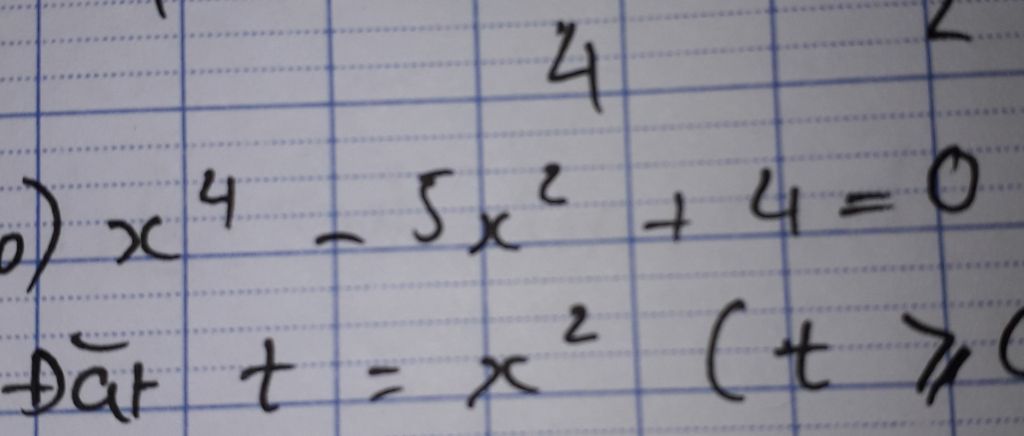 4
x⁴ - 5x² + 4 = 0
Đặt t = x² (t ≥